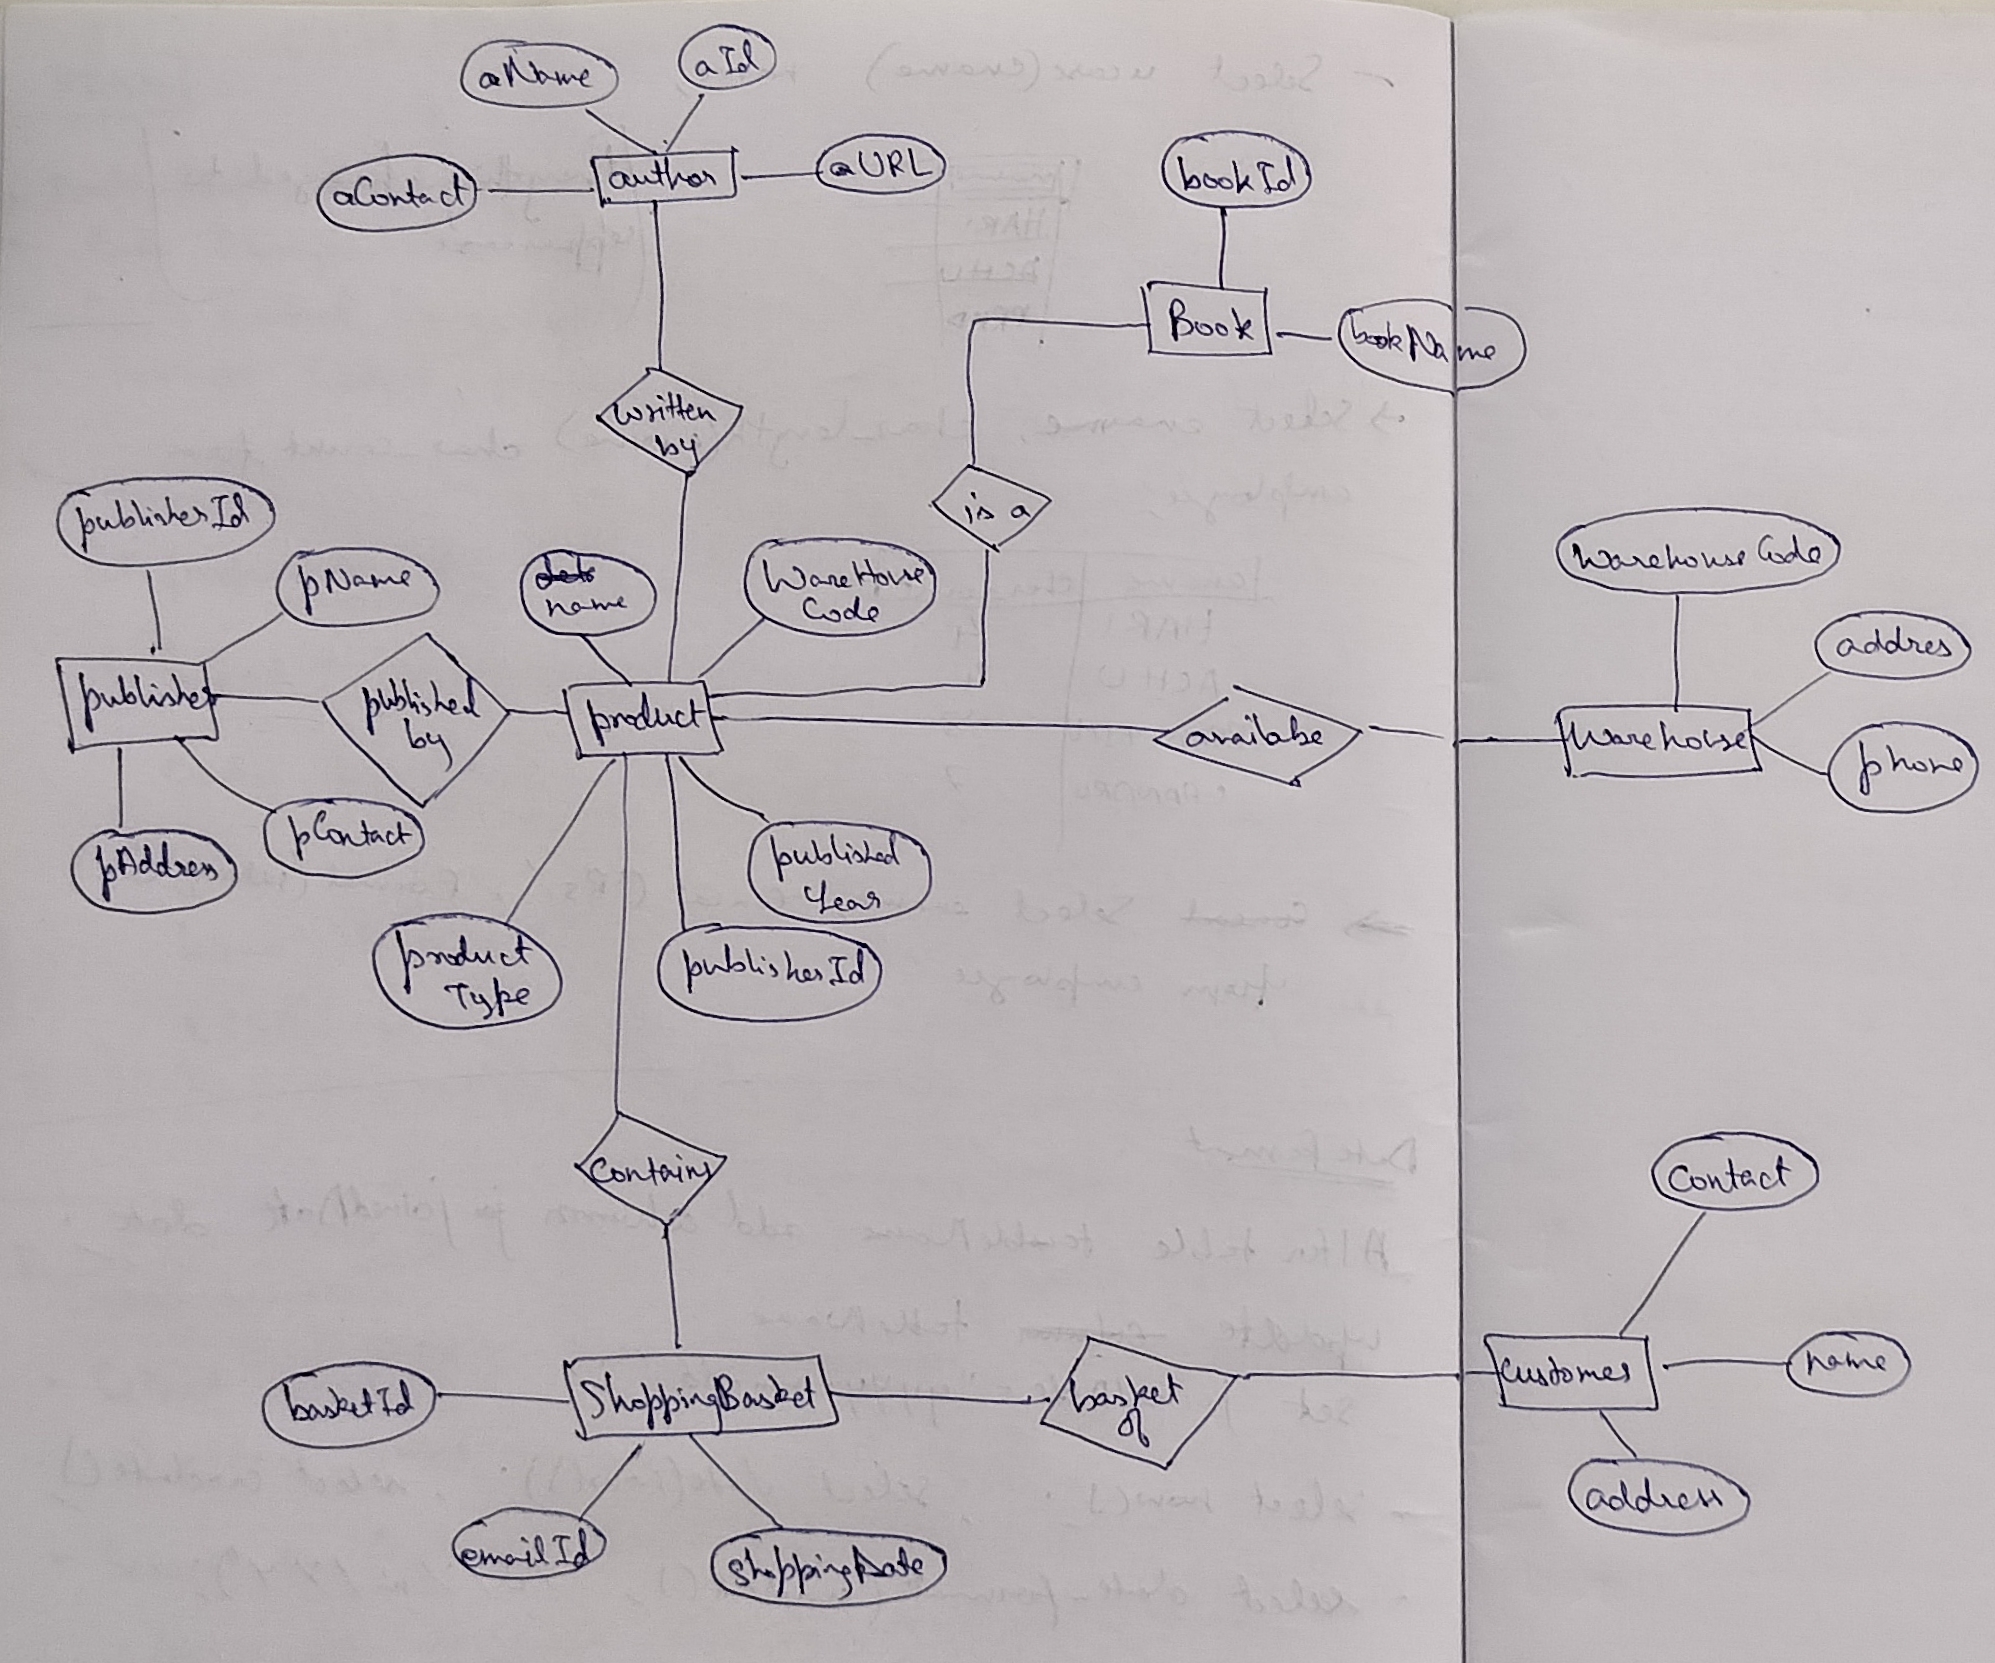 aName
aId
aContact
author
aURL
bookId
Book
bookName
written
by
is a
publisherId
pName
name
WareHouse
Code
WarehouseCode
addres
publisher
published
by
product
availabe
Warehouse
phone
pAddress
pContact
published
Year
product
Type
publisherId
Contains
Contact
basketId
ShoppingBasket
basket
of
Customer
name
address
emailId
shoppingDate